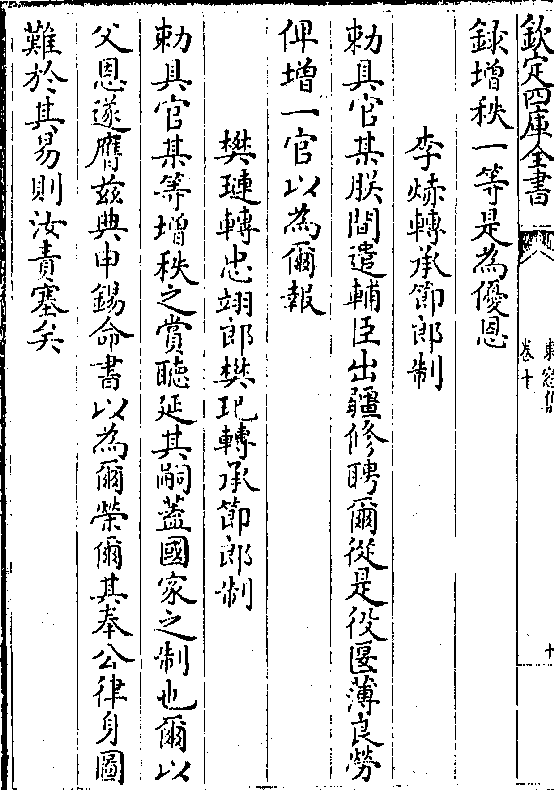 欽定四庫全書
卷十
十
録增秩一等是為優恩
李㷖轉承節郎制
勅具官某朕間遣輔臣出疆修聘爾從是役匽薄良勞
俾增一官以為爾報
樊璉轉忠翊郎樊玘轉承節郎制
勅具官某等增秩之賞聽延其嗣蓋國家之制也爾以
父恩遂膺兹典申錫命書以為爾榮爾其奉公律身圖
難於其易則汝責塞矣